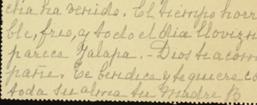 cha ha venido. El tiempo horri
ble, frio, y todo el dia llovizna
parece Jalapa. - Dios te acom
pañe. Te bendice y te quiere co
toda su alma tu Madre